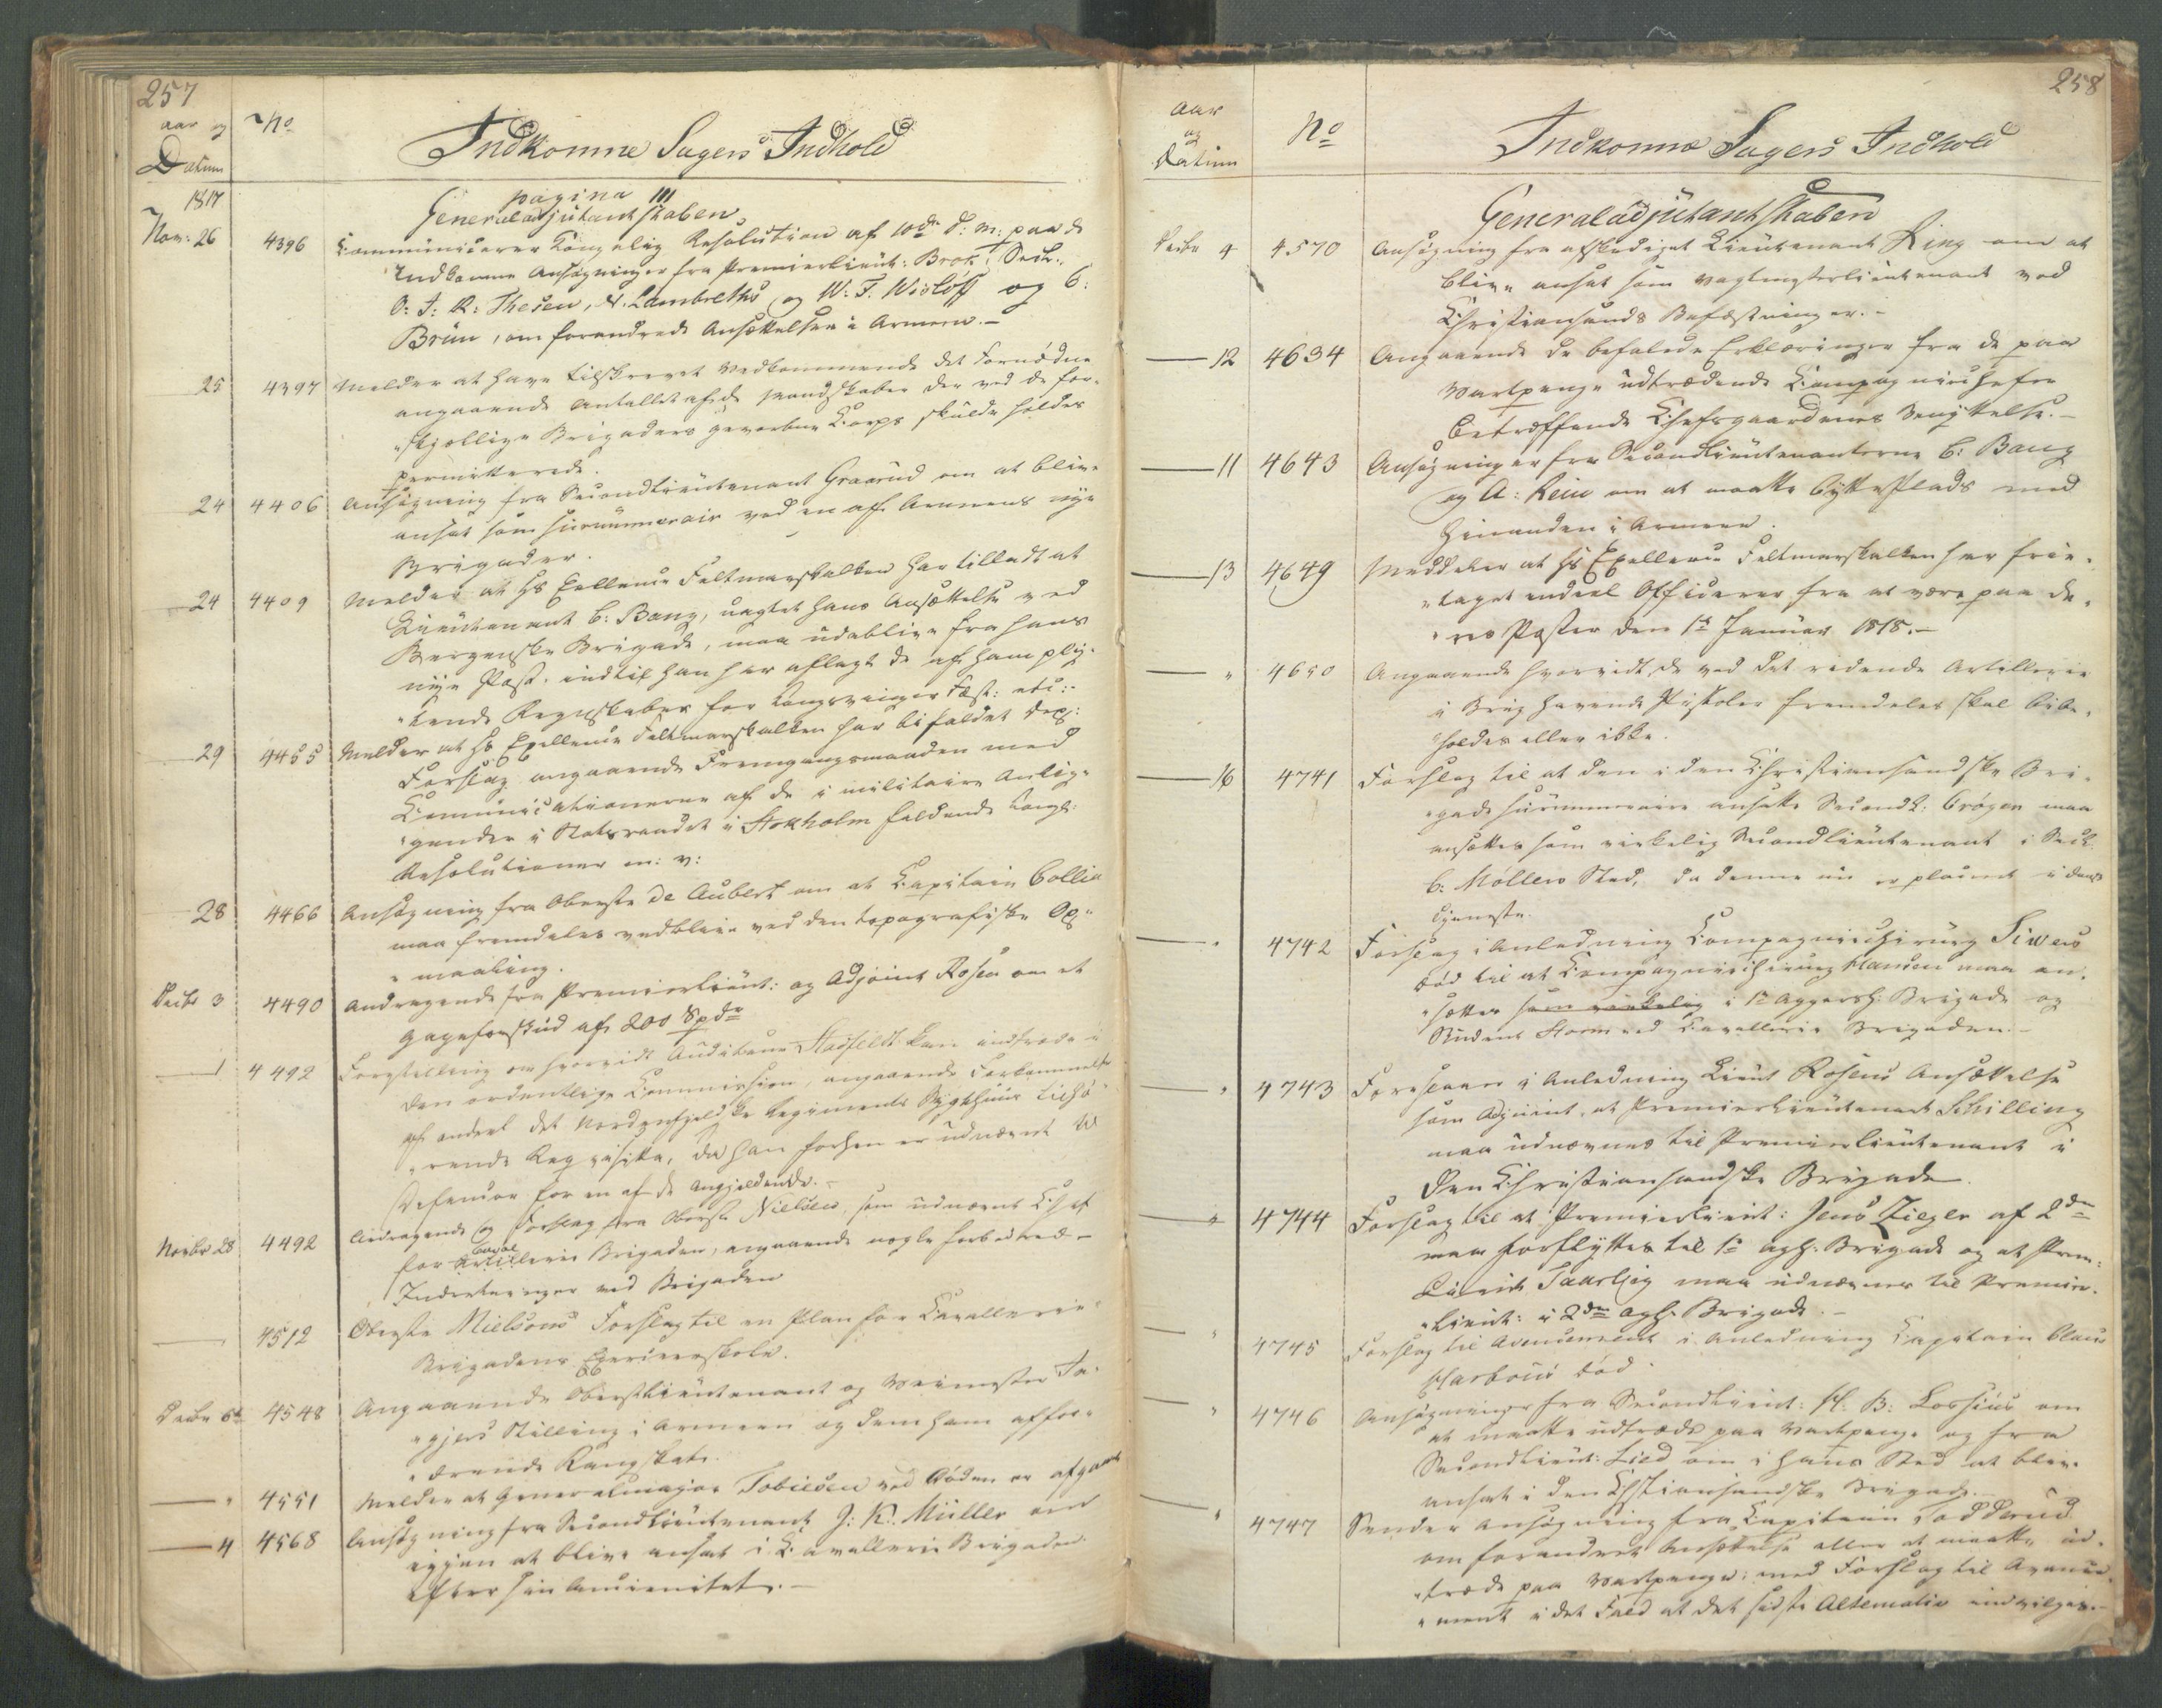 257
aar og
Datum
No
Indkomne Sagers Indhold
1817
pagina 111
Generaladjutantskaben
Nov: 26 4396 Communicerer Kongelig Resolution af 10de d: m: paa de
Indkomne Ansøgninger fra Premierlieut: Brock, Seck:
O: J: R: Thesen, N. Lambrethe, og W: F. Wisløff og C:
Brun, om forandrede Ansættelser i Armeen.-
25 4397 Melder at have tilskrevet Vedkommende det Fornødne
angaaende Antallet af de Mandskaber der ved de for-
"skjellige Brigaders gevorbne Corps skulde holdes
permitterede.
24 4406 Ansøgning fra Secondlieutenant Graarud om at blive
ansat som surnummerair ved en af Armeens nye
Brigader.
24 4409 Melder at Hs Exellence Feltmarskalken har tilladt at
Lieutenant C: Bang, uagtet hans Ansættelse ved
Bergenske Brigade, maa udeblive fra hans
nye Post, indtil han har aflagt de af ham plig-
"tende Regnskaber for Kongsvinger Fæst: etc:-
29 4455 Melder at Hs Exellence Feltmarskalken har bifaldet Dep:
Forslag angaaende Fremgangsmaaden med
Communicationerne af de i militaire Anlig-
"gender i Statsraadet i Stokholm faldende Kongl:
Resolutioner m: v:
28 4466 Ansøgning fra Oberste de Aubert om at Capitain Collin
maa fremdeles vedblive ved den topografiske Op-
"maaling.
Decbr 3 4490 Andragende fra Premierlieut: og Adjoint Rosen om et
Gageforskud af 200 Spdr
4492 Forestilling om hvorvidt Auditeur Stadfeldt kan indtræde i
den ordentlige Commission, angaaende Forkommelse
af endeel det Nordenfjeldske Regiments Sygehuus tilhø-
"rende Reqvisita, da han forhen er udnævnt til
Defensor for en af de angjeldende.-
Novbr 28 4492 Andragende og Forslag fra Oberst Nielsen, som udnævnt Chef
for Caval Artillerie Brigaden, angaaende nogle forbedrede
Indretninger ved Brigaden
4512 Oberste Nielsens Forslag til en Plan for Cavallerie-
Brigadens Exerceerskole.
Decbr 6te 4548 Angaaende Oberstlieutenant og Veimester
Stilling i Armeen og dem ham affor-
"drende Rangskat.
" 4551 Melder at Generalmajor Tobiesen ved Døden er afgaaet
4 4568 Ansøgning fra Secondlieutenant J: K. Müller om
igjen at blive ansat i Cavallerie Brigaden
efter sin Ancienitet.-
258
Aar
og
Datum
No
Indkomne Sagers Indhold
Generaladjutantskaben
Decbr 4 4570 Ansøgning fra afskediget Lieutenant Ring om at
blive ansat som Vagtmesterlieutenant ved
Christiansands Befæstninger.-
12 4634 Angaaende de befalede Erklæringer fra de paa
Vartpenge udtrædende Compagniechefer
betræffende Chefsgaardenes Benyttelse.-
11 4643 Ansøgninger fra Secondlieutenanterne C: Bang
og A: Rein om at maatte bytte Plads med
hinanden i Armeen.
13 4649 Meddeler at Hs Exellence Feltmarskalken har fri-
"taget endeel Officierer fra at være paa de-
"res Poster den 1ste Januar 1818.-
" 4650 Angaaende hvorvidt de ved det ridende Artillerie
i Brug havende Pistoler fremdeles skal bibe-
"holdes eller ikke.
16 4741 Forslag til at den i den Christiansandske Bri-
"gade surnummeraire ansatte Secondl: Crøger maa
ansættes som virkelig Secondlieutenant i Seck
C: Møllers Sted, da denne nu er placeret i dansk
Tjeneste.
" 4742 Forslag i Anledning Compagniechirurg Siwers
Død til at Compagniechirurg Hansen maa an-
"sættes som virkelig i 1ste Aggersh. Brigade og
Student Storm ved Cavallerie Brigaden.-
" 4743 Foreslaaer i Anledning Lieut Rosens Ansættelse
som Adjoint, at Premierlieutenant Schilling
maa udnævnes til Premierlieutenant i
den Christiansandske Brigade.
" 4744 Forslag til at Premierlieut: Jens Ziegler af 2den
maa forflyttes til 1ste agh. Brigade og at Prem:
Lieut Taarberg maa udnævnes til Premier-
"lieut: i 2den agh. Brigade.-
" 4745 Forslag til Avancement i Anledning Capitain Claus
Harboes Død.
" 4746 Ansøgninger fra Secondlieut: H. B: Lossius om
at maatte udtræde paa Vartpenge og fra
Secondlieut: Lied om i hans Sted at blive
ansat i den Chstiansandske Brigade.-
" 4747 Sender Ansøgning fra Capitain
om forandret Ansættelse eller at maatte ud-
"træde paa Vartpenge; med Forslag til Avance-
"ment i det Fald at det sidste Alternativ indvilges.-